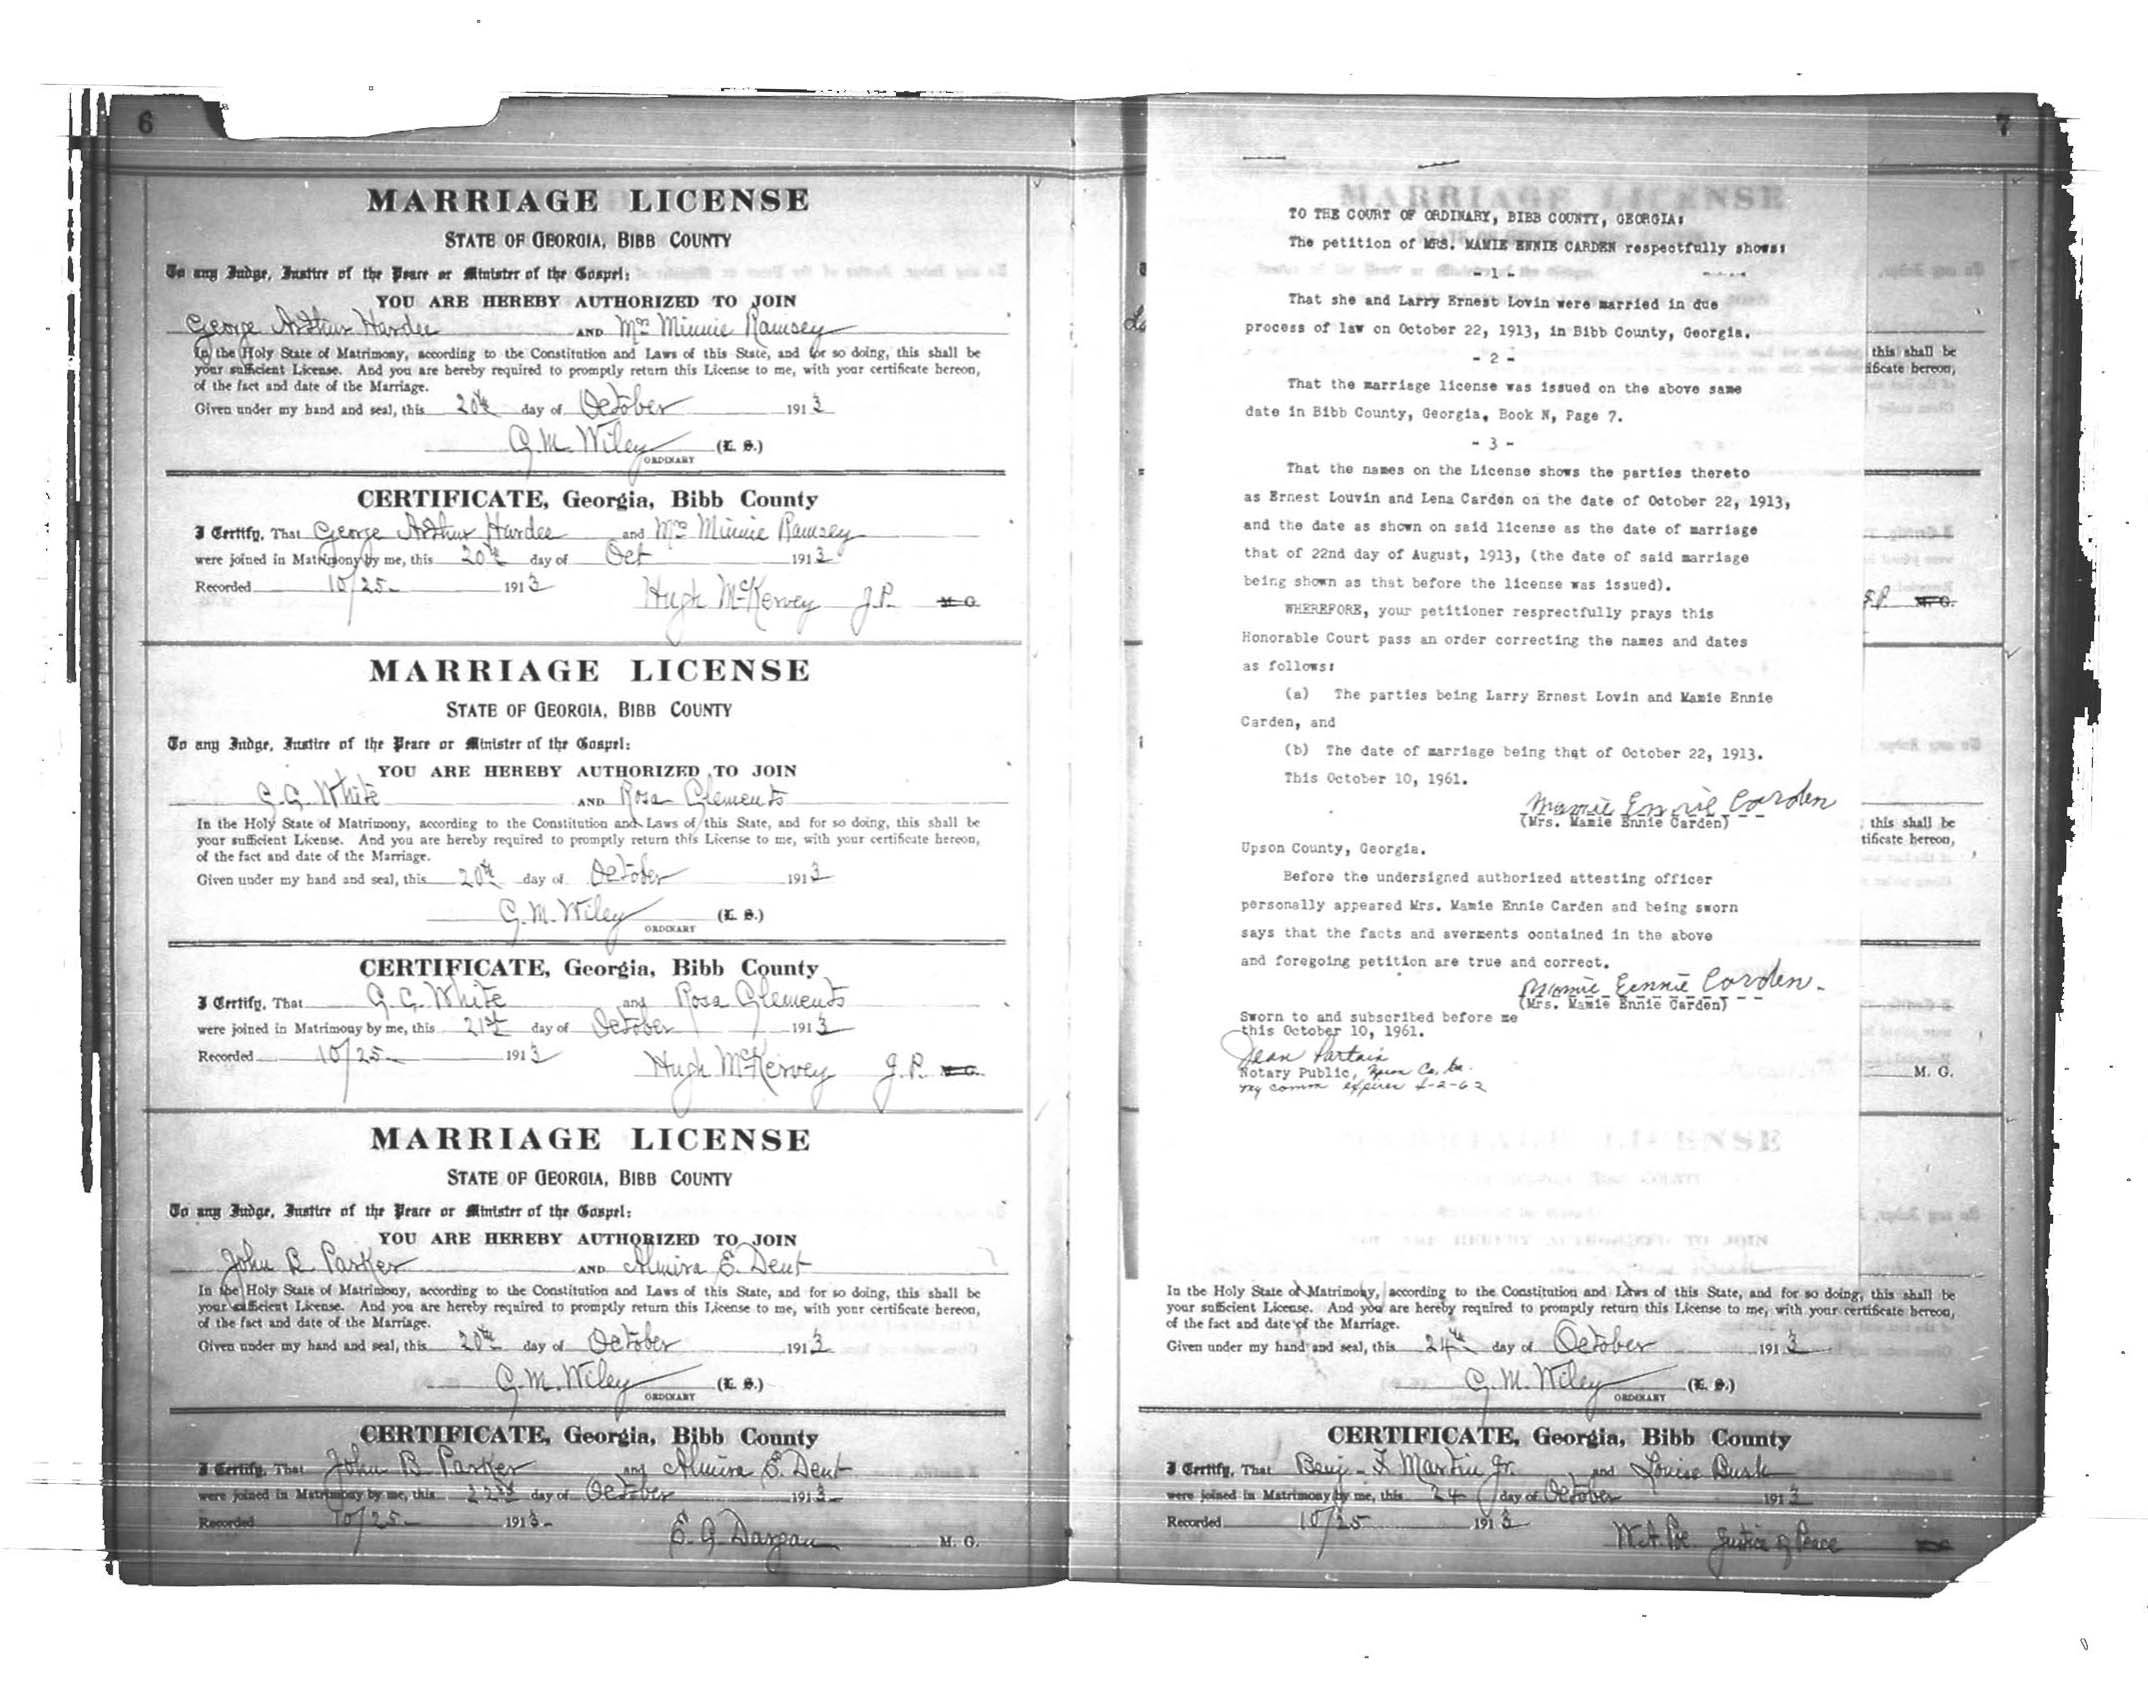 6
MARRIAGE LICENSE
STATE OF GEORGIA, BIBB COUNTY
To any Judge, Justice of the Peace or Minister of the Gospel:
YOU ARE HEREBY AUTHORIZED TO JOIN
George Arthur Hardee AND Mrs Minnie Ramsey
In the Holy State of Matrimony, according to the Constitution and Laws of this State, and for so doing, this shall be
your sufficient License. And you are hereby required to promptly return this License to me, with your certificate hereon,
of the fact and date of the Marriage.
Given under my hand and seal, this 20th day of October 1913
C. M. Wiley (L. S.)
ORDINARY
CERTIFICATE, Georgia, Bibb County
I Certify, That George Arthur Hardee and Mrs Minnie Ramsey
were joined in Matrimony by me, this 20th day of Oct 1913
Recorded 10/25 1913
Hugh McKervey J.P. M. G.
MARRIAGE LICENSE
STATE OF GEORGIA, BIBB COUNTY
To any Judge, Justice of the Peace or Minister of the Gospel:
YOU ARE HEREBY AUTHORIZED TO JOIN
G. G. White AND Rosa Clements
In the Holy State of Matrimony, according to the Constitution and Laws of this State, and for so doing, this shall be
your sufficient License. And you are hereby required to promptly return this License to me, with your certificate hereon,
of the fact and date of the Marriage.
Given under my hand and seal, this 20th day of October 1913
C. M. Wiley (L. S.)
ORDINARY
CERTIFICATE, Georgia, Bibb County
I Certify, That G. G. White and Rosa Clements
were joined in Matrimony by me, this 21st day of October 1913
Recorded 10/25 1913
Hugh McKervey J.P. M. G.
MARRIAGE LICENSE
STATE OF GEORGIA, BIBB COUNTY
To any Judge, Justice of the Peace or Minister of the Gospel:
YOU ARE HEREBY AUTHORIZED TO JOIN
John B Parker AND Almira E. Dent
In the Holy State of Matrimony, according to the Constitution and Laws of this State, and for so doing, this shall be
your sufficient License. And you are hereby required to promptly return this License to me, with your certificate hereon,
of the fact and date of the Marriage.
Given under my hand and seal, this 20th day of October 1913
C. M. Wiley (L. S.)
ORDINARY
CERTIFICATE, Georgia, Bibb County
I Certify, That John B Parker and Almira E. Dent
were joined in Matrimony by me, this 22nd day of October 1913
Recorded 10/25 1913
E. A. Dargan M. G.
7
TO THE COURT OF ORDINARY, BIBB COUNTY, GEORGIA:
The petition of MRS. MAMIE ENNIE CARDEN respectfully shows:
- 1 -
That she and Larry Ernest Lovin were married in due
process of law on October 22, 1913, in Bibb County, Georgia.
- 2 -
That the marriage license was issued on the above same
date in Bibb County, Georgia, Book N, Page 7.
- 3 -
That the names on the License shows the parties thereto
as Ernest Louvin and Lena Carden on the date of October 22, 1913,
and the date as shown on said license as the date of marriage
that of 22nd day of August, 1913, (the date of said marriage
being shown as that before the license was issued).
WHEREFORE, your petitioner resprectfully prays this
Honorable Court pass an order correcting the names and dates
as follows:
(a) The parties being Larry Ernest Lovin and Mamie Ennie
Carden, and
(b) The date of marriage being that of October 22, 1913.
This October 10, 1961.
Mamie Ennie Carden
(Mrs. Mamie Ennie Carden)
Upson County, Georgia.
Before the undersigned authorized attesting officer
personally appeared Mrs. Mamie Ennie Carden and being sworn
says that the facts and averments contained in the above
and foregoing petition are true and correct.
Mamie Ennie Carden
(Mrs. Mamie Ennie Carden)
Sworn to and subscribed before me
this October 10, 1961.
Jean Partain
Notary Public, Upson Co, Ga.
my comm expires 4-2-62
this shall be
ificate hereon,
J.P. M. G.
this shall be
tificate hereon,
M. G.
In the Holy State of Matrimony, according to the Constitution and Laws of this State, and for so doing, this shall be
your sufficient License. And you are hereby required to promptly return this License to me, with your certificate hereon,
of the fact and date of the Marriage.
Given under my hand and seal, this 24th day of October 1913
C. M. Wiley (L. S.)
ORDINARY
CERTIFICATE, Georgia, Bibb County
I Certify, That Benj. F Martin Jr. and Louise Bush
were joined in Matrimony by me, this 24 day of October 1913
Recorded 10/25 1913
W. A. Poe Justice of Peace